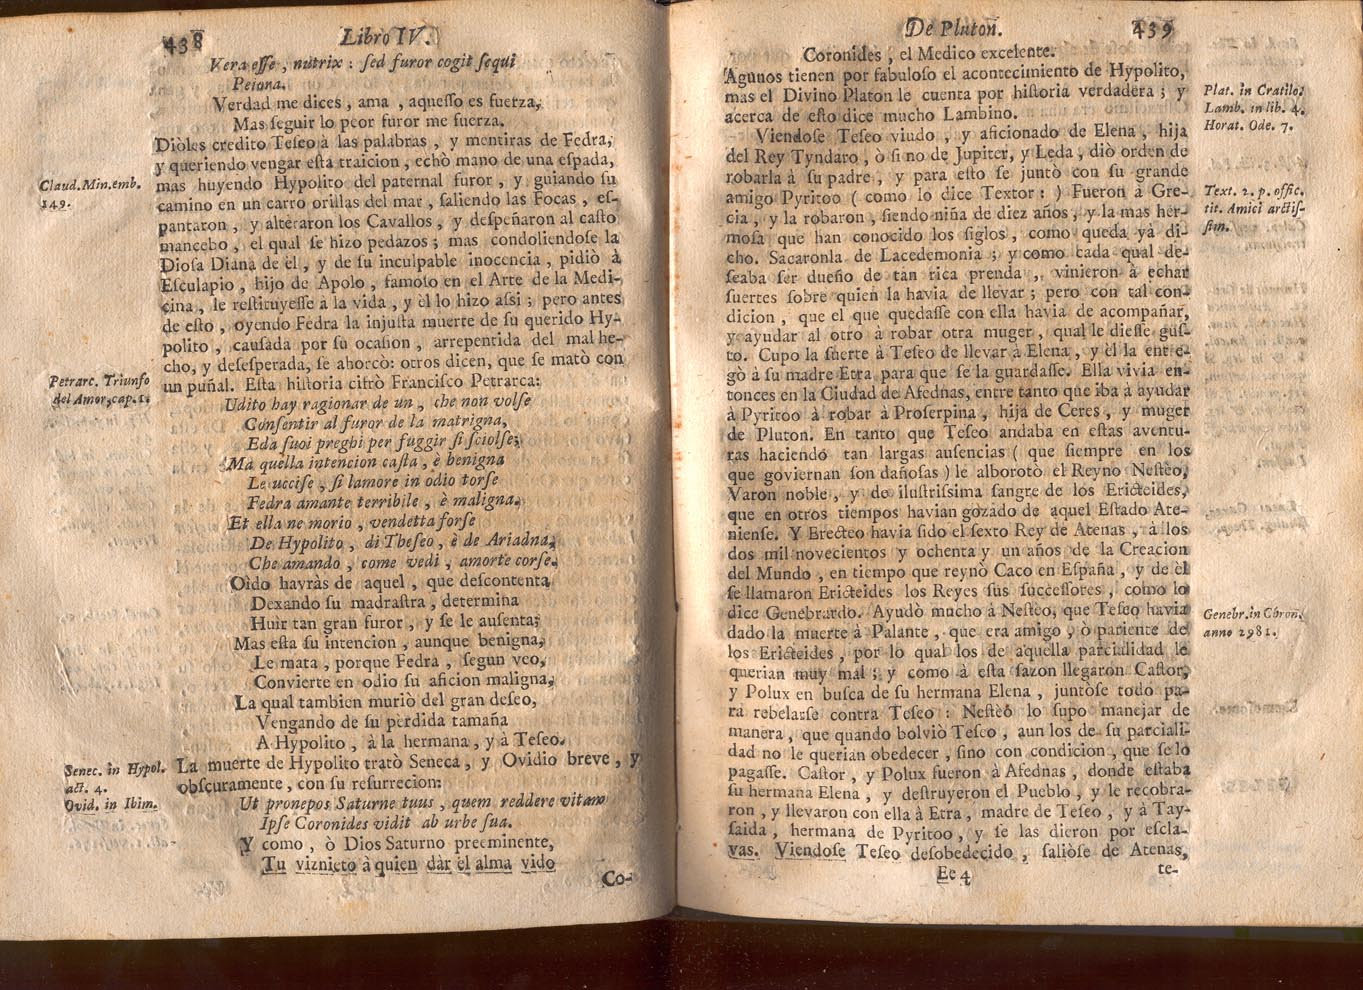 438 Libro IV.
Vera eſſe, nutrix: ſed furor cogit ſequi
Peiona.
Verdad me dices, ama, aqueſſo es fuerza,
Mas ſeguir lo peor furor me fuerza.
Diòles credito Teſeo à las palabras, y mentiras de Fedra,
y queriendo vengar eſta traicion, echò mano de una eſpada,
Claud. Min. emb.
149.
mas huyendo Hypolito del paternal furor, y guiando ſu
camino en un carro orillas del mar, ſaliendo las Focas, eſ-
pantaron, y alteraron los Cavallos, y deſpeñaron al caſto
mancebo, el qual ſe hizo pedazos; mas condoliendoſe la
Dioſa Diana de èl, y de ſu inculpable inocencia, pidiò à
Eſculapio, hijo de Apolo, famoſo en el Arte de la Medi-
cina, le reſtituyeſſe à la vida, y èl lo hizo aſsi; pero antes
de eſto, oyendo Fedra la injuſta muerte de ſu querido Hy-
polito, cauſada por ſu ocaſion, arrepentida del mal he-
cho, y deſeſperada, ſe ahorcò: otros dicen, que ſe matò con
Petrarc. Triunfo
del Amor, cap. 1.
un puñal. Eſta hiſtoria citrò Franciſco Petrarca:
Udito hay ragionar de un, che non volſe
Conſentir al furor de la matrigna,
Eda ſuoi preghi per fuggir ſi ſciolſe;
Ma quella intencion caſta, è benigna
Le ucciſe, ſi lamore in odio torſe
Fedra amante terribile, è maligna.
Et ella ne morio, vendetta forſe
De Hypolito, di Theſeo, è de Ariadna,
Che amando, come vedi, amorte corſe.
Oìdo havràs de aquel, que deſcontenta
Dexando ſu madraſtra, determina
Huir tan gran furor, y ſe le auſenta;
Mas eſta ſu intencion, aunque benigna,
Le mata, porque Fedra, ſegun veo,
Convierte en odio ſu aficion maligna,
La qual tambien muriò del gran deſeo,
Vengando de ſu perdida tamaña
A Hypolito, à la hermana, y à Teſeo.
Senec. in Hypol.
act. 4.
Ovid. in Ibim.
La muerte de Hypolito tratò Seneca, y Ovidio breve, y
obſcuramente, con ſu reſurrecion:
Ut pronepos Saturne tuus, quem reddere vitam
Ipſe Coronides vidit ab urbe ſua.
Y como, ò Dios Saturno preeminente,
Tu viznieto à quien dàr el alma vido
Co-
De Pluton. 439
Coronides, el Medico excelente.
Agunos tienen por fabuloſo el acontecimiento de Hypolito,
mas el Divino Platon le cuenta por hiſtoria verdadera; y
acerca de eſto dice mucho Lambino.
Plat. in Cratilo.
Lamb. in lib. 4.
Horat. Ode. 7.
Viendoſe Teſeo viudo, y aficionado de Elena, hija
del Rey Tyndaro, ò ſi no de Jupiter, y Leda, diò orden de
robarla à ſu padre, y para eſto ſe juntò con ſu grande
amigo Pyritoo (como lo dice Textor:) Fueron à Gre-
Text. 2. p. offic.
tit. Amici arctiſ-
ſim.
cia, y la robaron, ſiendo niña de diez años, y la mas her-
moſa que han conocido los ſiglos, como queda yà di-
cho. Sacaronla de Lacedemonia; y como cada qual de-
ſeaba ſer dueño de tan rica prenda, vinieron à echar
ſuertes ſobre quien la havia de llevar; pero con tal con-
dicion, que el que quedaſſe con ella havia de acompañar,
y ayudar al otro à robar otra muger, qual le dieſſe guſ-
to. Cupo la ſuerte à Teſeo de llevar à Elena, y èl la entre-
gò à ſu madre Etra para que ſe la guardaſſe. Ella vivia en-
tonces en la Ciudad de Afednas, entre tanto que iba à ayudar
à Pyritoo à robar à Proſerpina, hija de Ceres, y muger
de Pluton. En tanto que Teſeo andaba en eſtas aventu-
ras haciendo tan largas auſencias (que ſiempre en los
que goviernan ſon dañoſas) le alborotò el Reyno Neſteo,
Varon noble, y de iluſtriſsima ſangre de los Ericteides,
que en otros tiempos havian gozado de aquel Eſtado Ate-
nienſe. Y Erecteo havia ſido el ſexto Rey de Atenas, à los
dos mil novecientos y ochenta y un años de la Creacion
del Mundo, en tiempo que reynò Caco en Eſpaña, y de èl
ſe llamaron Ericteides los Reyes ſus ſucceſſores, como lo
dice Genebrardo. Ayudò mucho à Neſteo, que Teſeo havia
Genebr. in Chron.
anno 2981.
dado la muerte à Palante, que era amigo, ò pariente de
los Ericteides, por lo qual los de aquella parcialidad le
querian muy mal; y como à eſta ſazon llegaron Caſtor,
y Polux en buſca de ſu hermana Elena, juntòſe todo pa-
ra rebelarſe contra Teſeo: Neſteo lo ſupo manejar de
manera, que quando bolviò Teſeo, aun los de ſu parciali-
dad no le querian obedecer, ſino con condicion, que ſe lo
pagaſſe. Caſtor, y Polux fueron à Afednas, donde eſtaba
ſu hermana Elena, y deſtruyeron el Pueblo, y le recobra-
ron, y llevaron con ella à Etra, madre de Teſeo, y à Tay-
ſaida, hermana de Pyritoo, y ſe las dieron por eſcla-
vas. Viendoſe Teſeo deſobedecido, ſaliòſe de Atenas,
Ee 4 te-